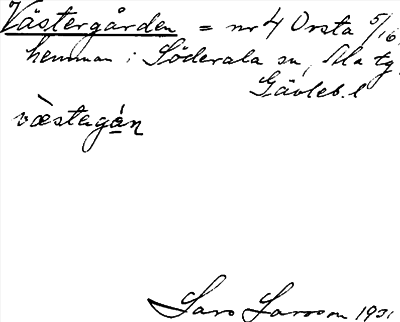 Västergården = nr 4 Orsta 5/16
hemman i Söderala sn, Ala tg
Gävleb. l
væstagán
Lars Larsson 1931